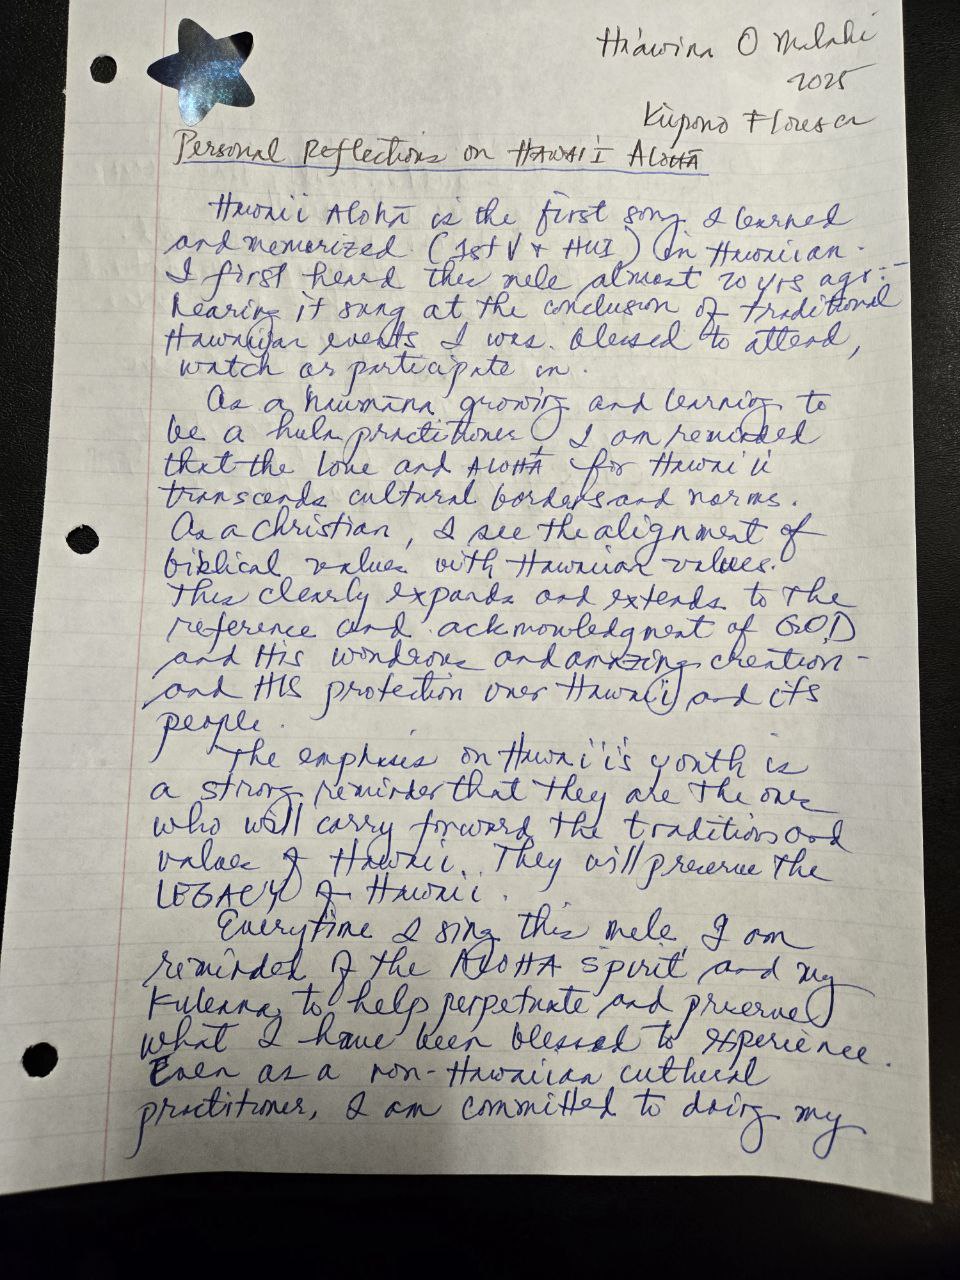 Ha'awina O Malahi
2025
Kūpono Floresca
Personal Reflections on HAWAI'I ALOHA
Hawai'i Aloha is the first song I learned
and memorized (1st V + HUI) in Hawaiian.
I first heard this mele almost 20 yrs ago -
hearing it sung at the conclusion of traditional
Hawaiian events I was blessed to attend,
watch or participate in.
As a haumāna growing and learning to
be a hula practitioner I am reminded
that the love and ALOHA for Hawai'i
transcends cultural borders and norms.
As a Christian, I see the alignment of
biblical values with Hawaiian values.
This clearly expands and extends to the
reference and acknowledgment of GOD
and His wondrous and amazing creation -
and HIS protection over Hawai'i and its
people.
The emphasis on Hawai'i's youth is
a strong reminder that they are the ones
who will carry forward the traditions and
values of Hawai'i. They will preserve the
LEGACY of Hawai'i.
Everytime I sing this mele, I am
reminded of the ALOHA spirit and my
Kuleana to help perpetuate and preserve
what I have been blessed to experience.
Even as a non-Hawaiian cultural
practitioner, I am committed to doing my